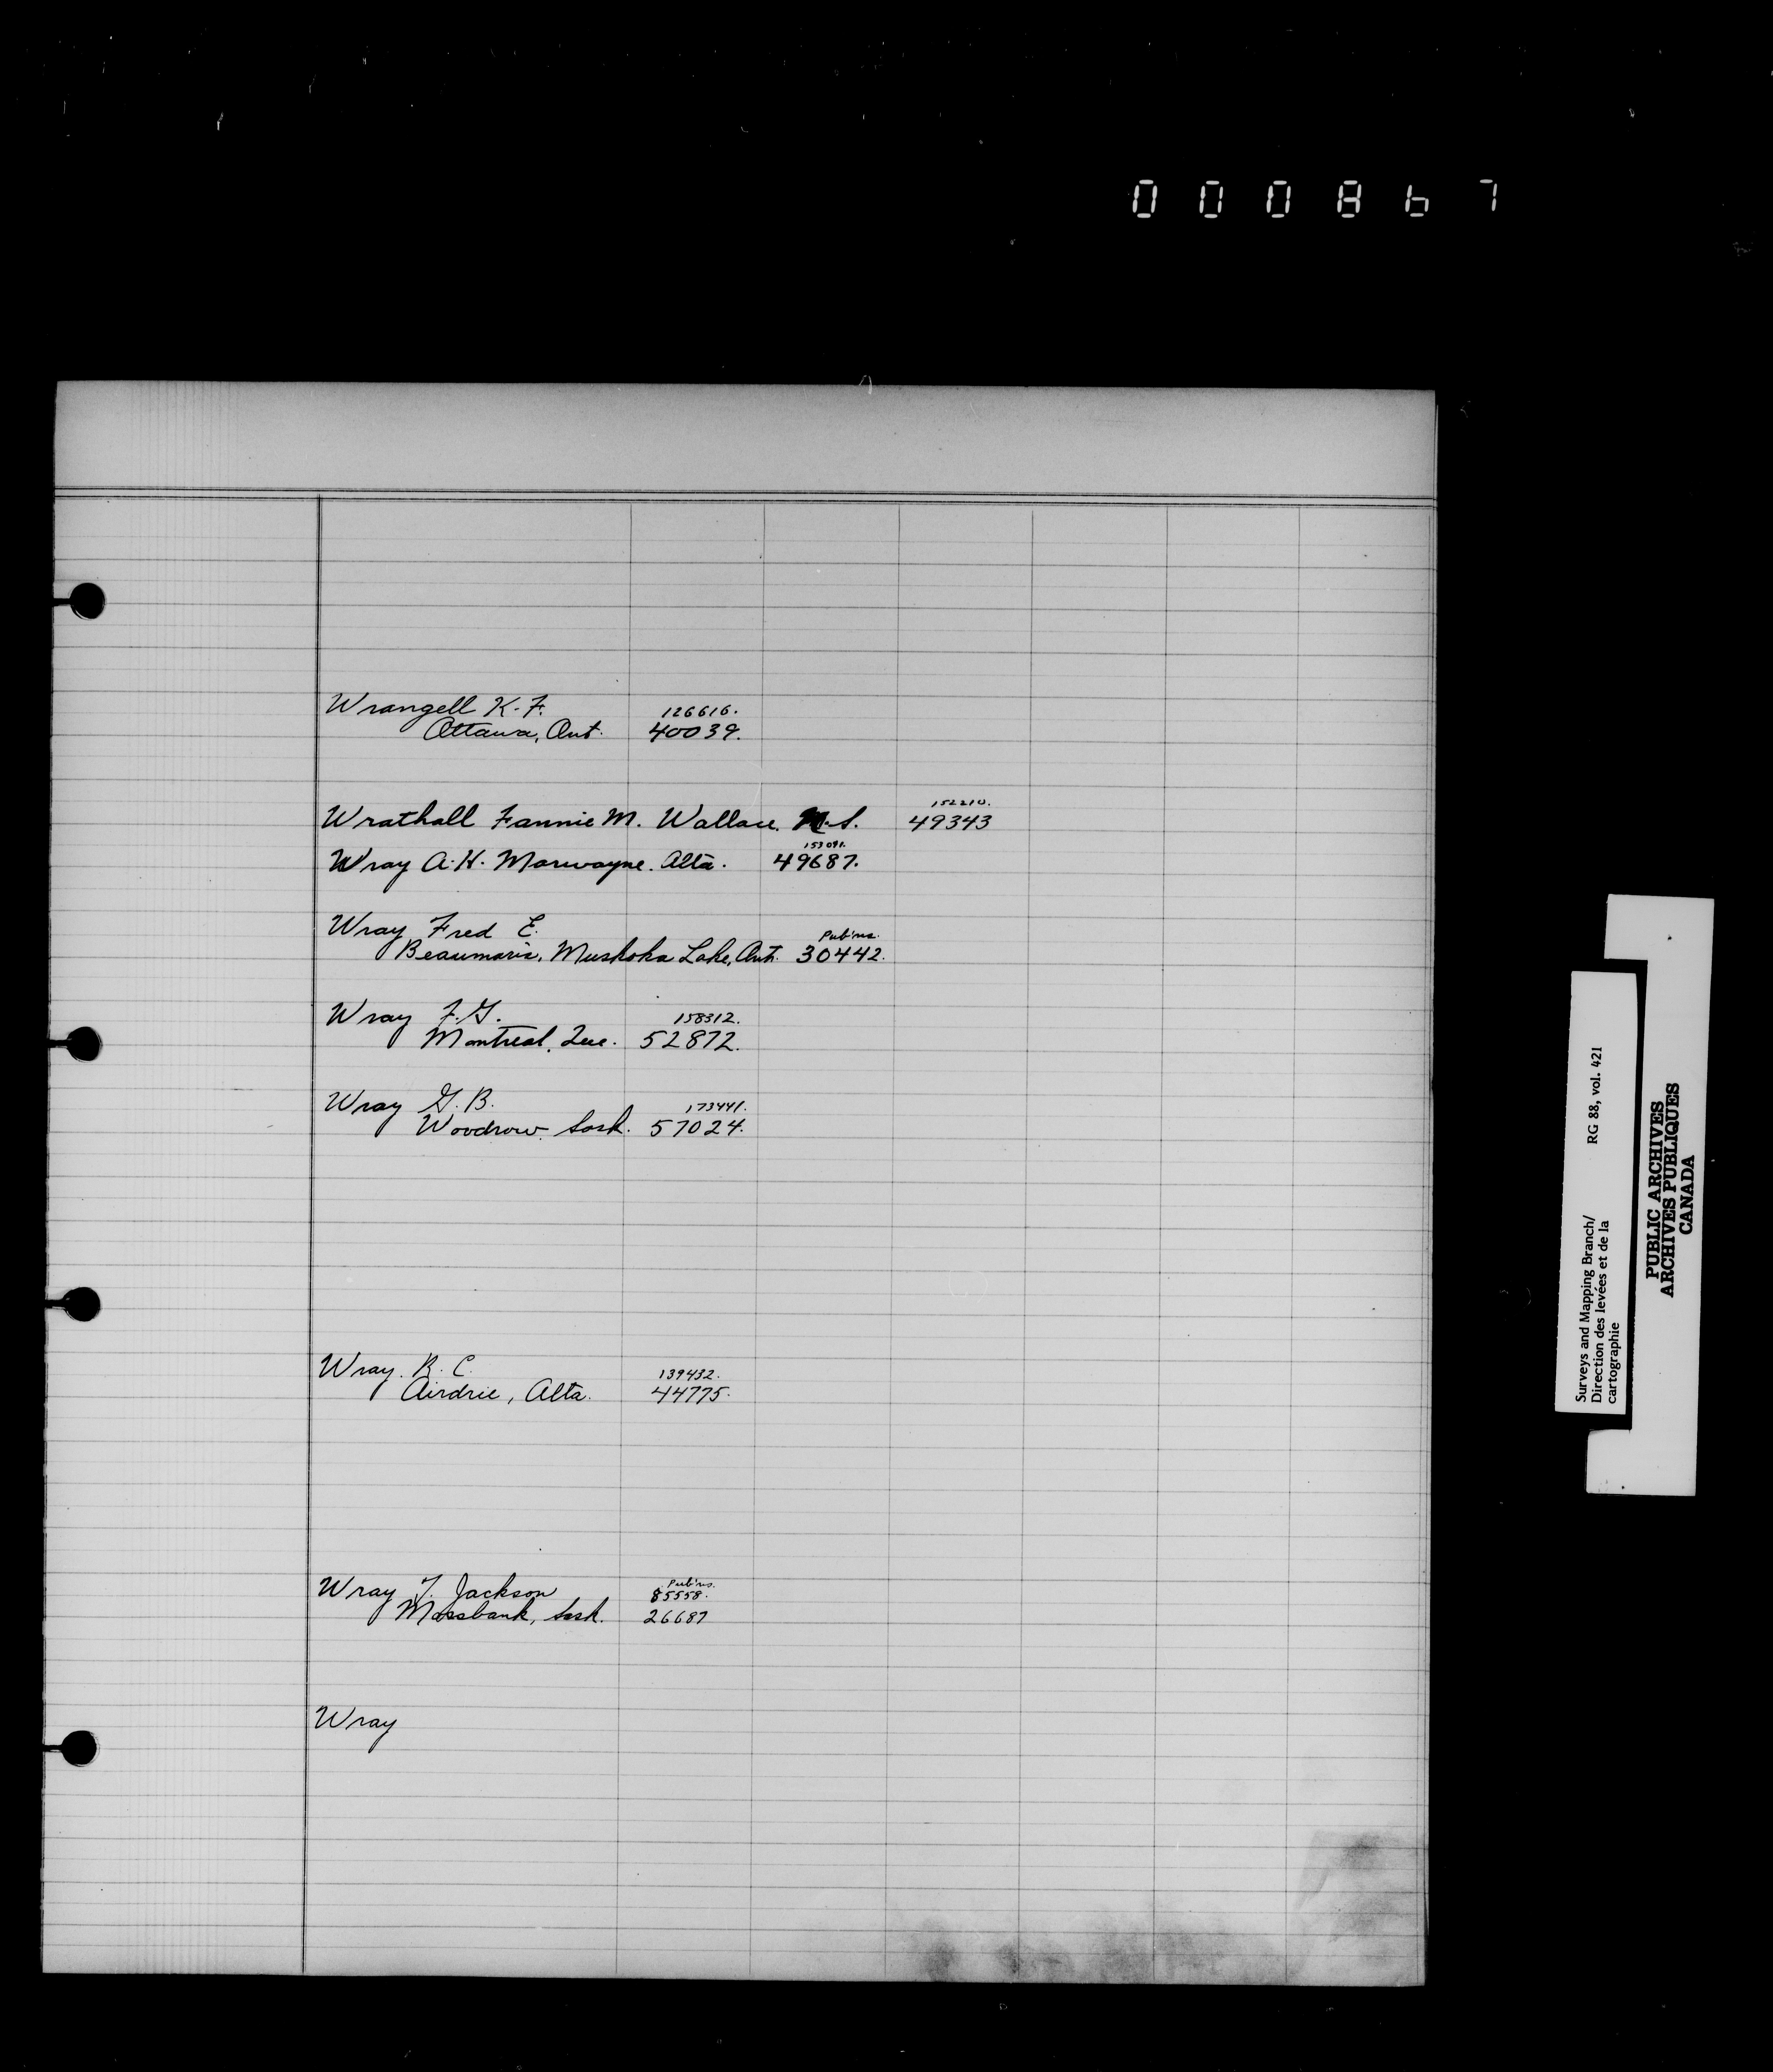 000867
Wrangell K. F. 126616.
Ottawa, Ont. 40039.
152210.
Wrathall Fannie M. Wallace. N.S. 49343
153091.
Wray A. H. Marwayne. Alta. 49687.
Wray Fred E. Pub'ns.
Beaumaris, Muskoka Lake, Ont. 30442.
Wray F. G. 158312.
Montreal, Que. 52872.
Wray G. B. 173441.
Woodrow, Sask. 57024.
Wray. R. C. 139432.
Airdrie, Alta. 44775.
Pub'ns.
Wray T. Jackson 85558.
Mossbank, Sask. 26687
Wray
Surveys and Mapping Branch/ RG 88, vol. 421
Direction des levées et de la
cartographie
PUBLIC ARCHIVES
ARCHIVES PUBLIQUES
CANADA